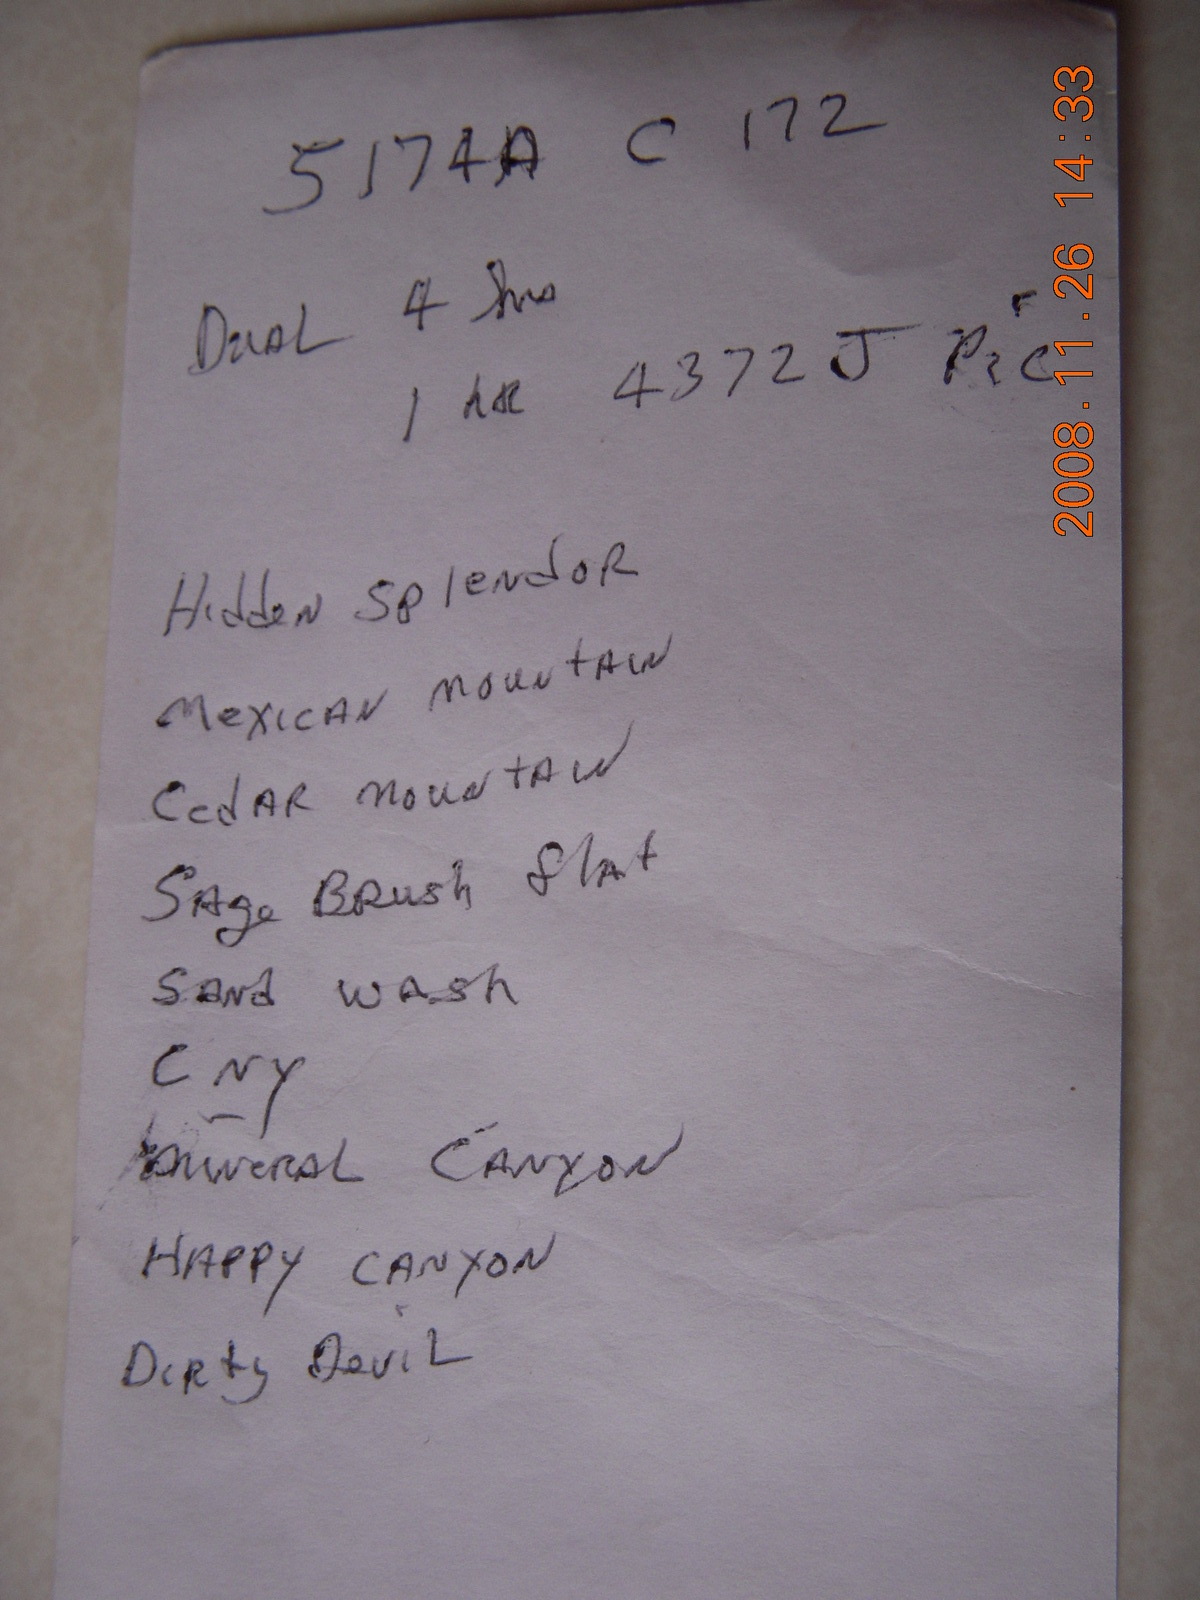 5174A C 172
Dual 4 hrs
1 hr 4372J Pic
Hidden Splendor
Mexican mountain
Cedar mountain
Sage Brush flat
Sand wash
CNY
mineral Canyon
Happy Canyon
Dirty Devil
2008.11.26 14:33